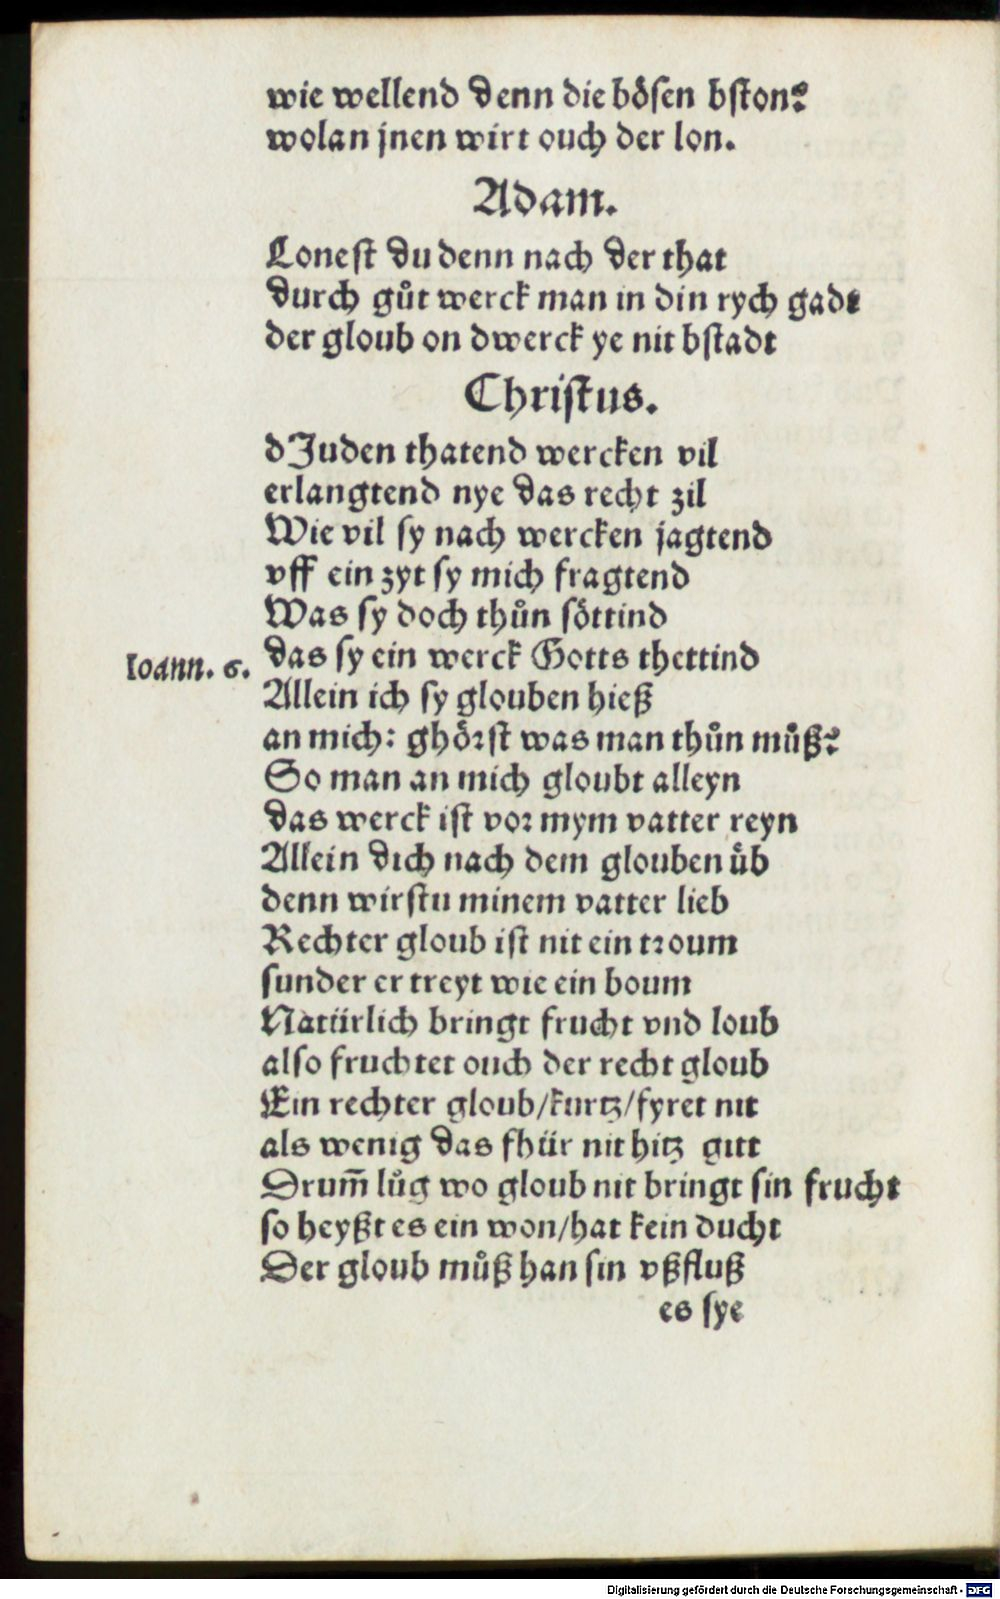 wie wellend denn die bösen bston?
wolan jnen wirt ouch der lon.
Adam.
Lonest du denn nach der that
durch gůt werck man in din rych gadt
der gloub on dwerck ye nit bstadt
Christus.
dJuden thatend wercken vil
erlangtend nye das recht zil
Wie vil sy nach wercken jagtend
vff ein zyt sy mich fragtend
Was sy doch thůn söttind
Ioann. 6. das sy ein werck Gotts thettind
Allein ich sy glouben hieß
an mich: ghörst was man thůn můß?
So man an mich gloubt alleyn
das werck ist vor mym vatter reyn
Allein dich nach dem glouben üb
denn wirstu minem vatter lieb
Rechter gloub ist nit ein troum
sunder er treyt wie ein boum
Natürlich bringt frucht vnd loub
also fruchtet ouch der recht gloub
Ein rechter gloub/kurtz/fyret nit
als wenig das fhür nit hitz gitt
Drum̄ lůg wo gloub nit bringt sin frucht
so heyßt es ein won/hat kein ducht
Der gloub můß han sin vßfluß
es sye
Digitalisierung gefördert durch die Deutsche Forschungsgemeinschaft - DFG